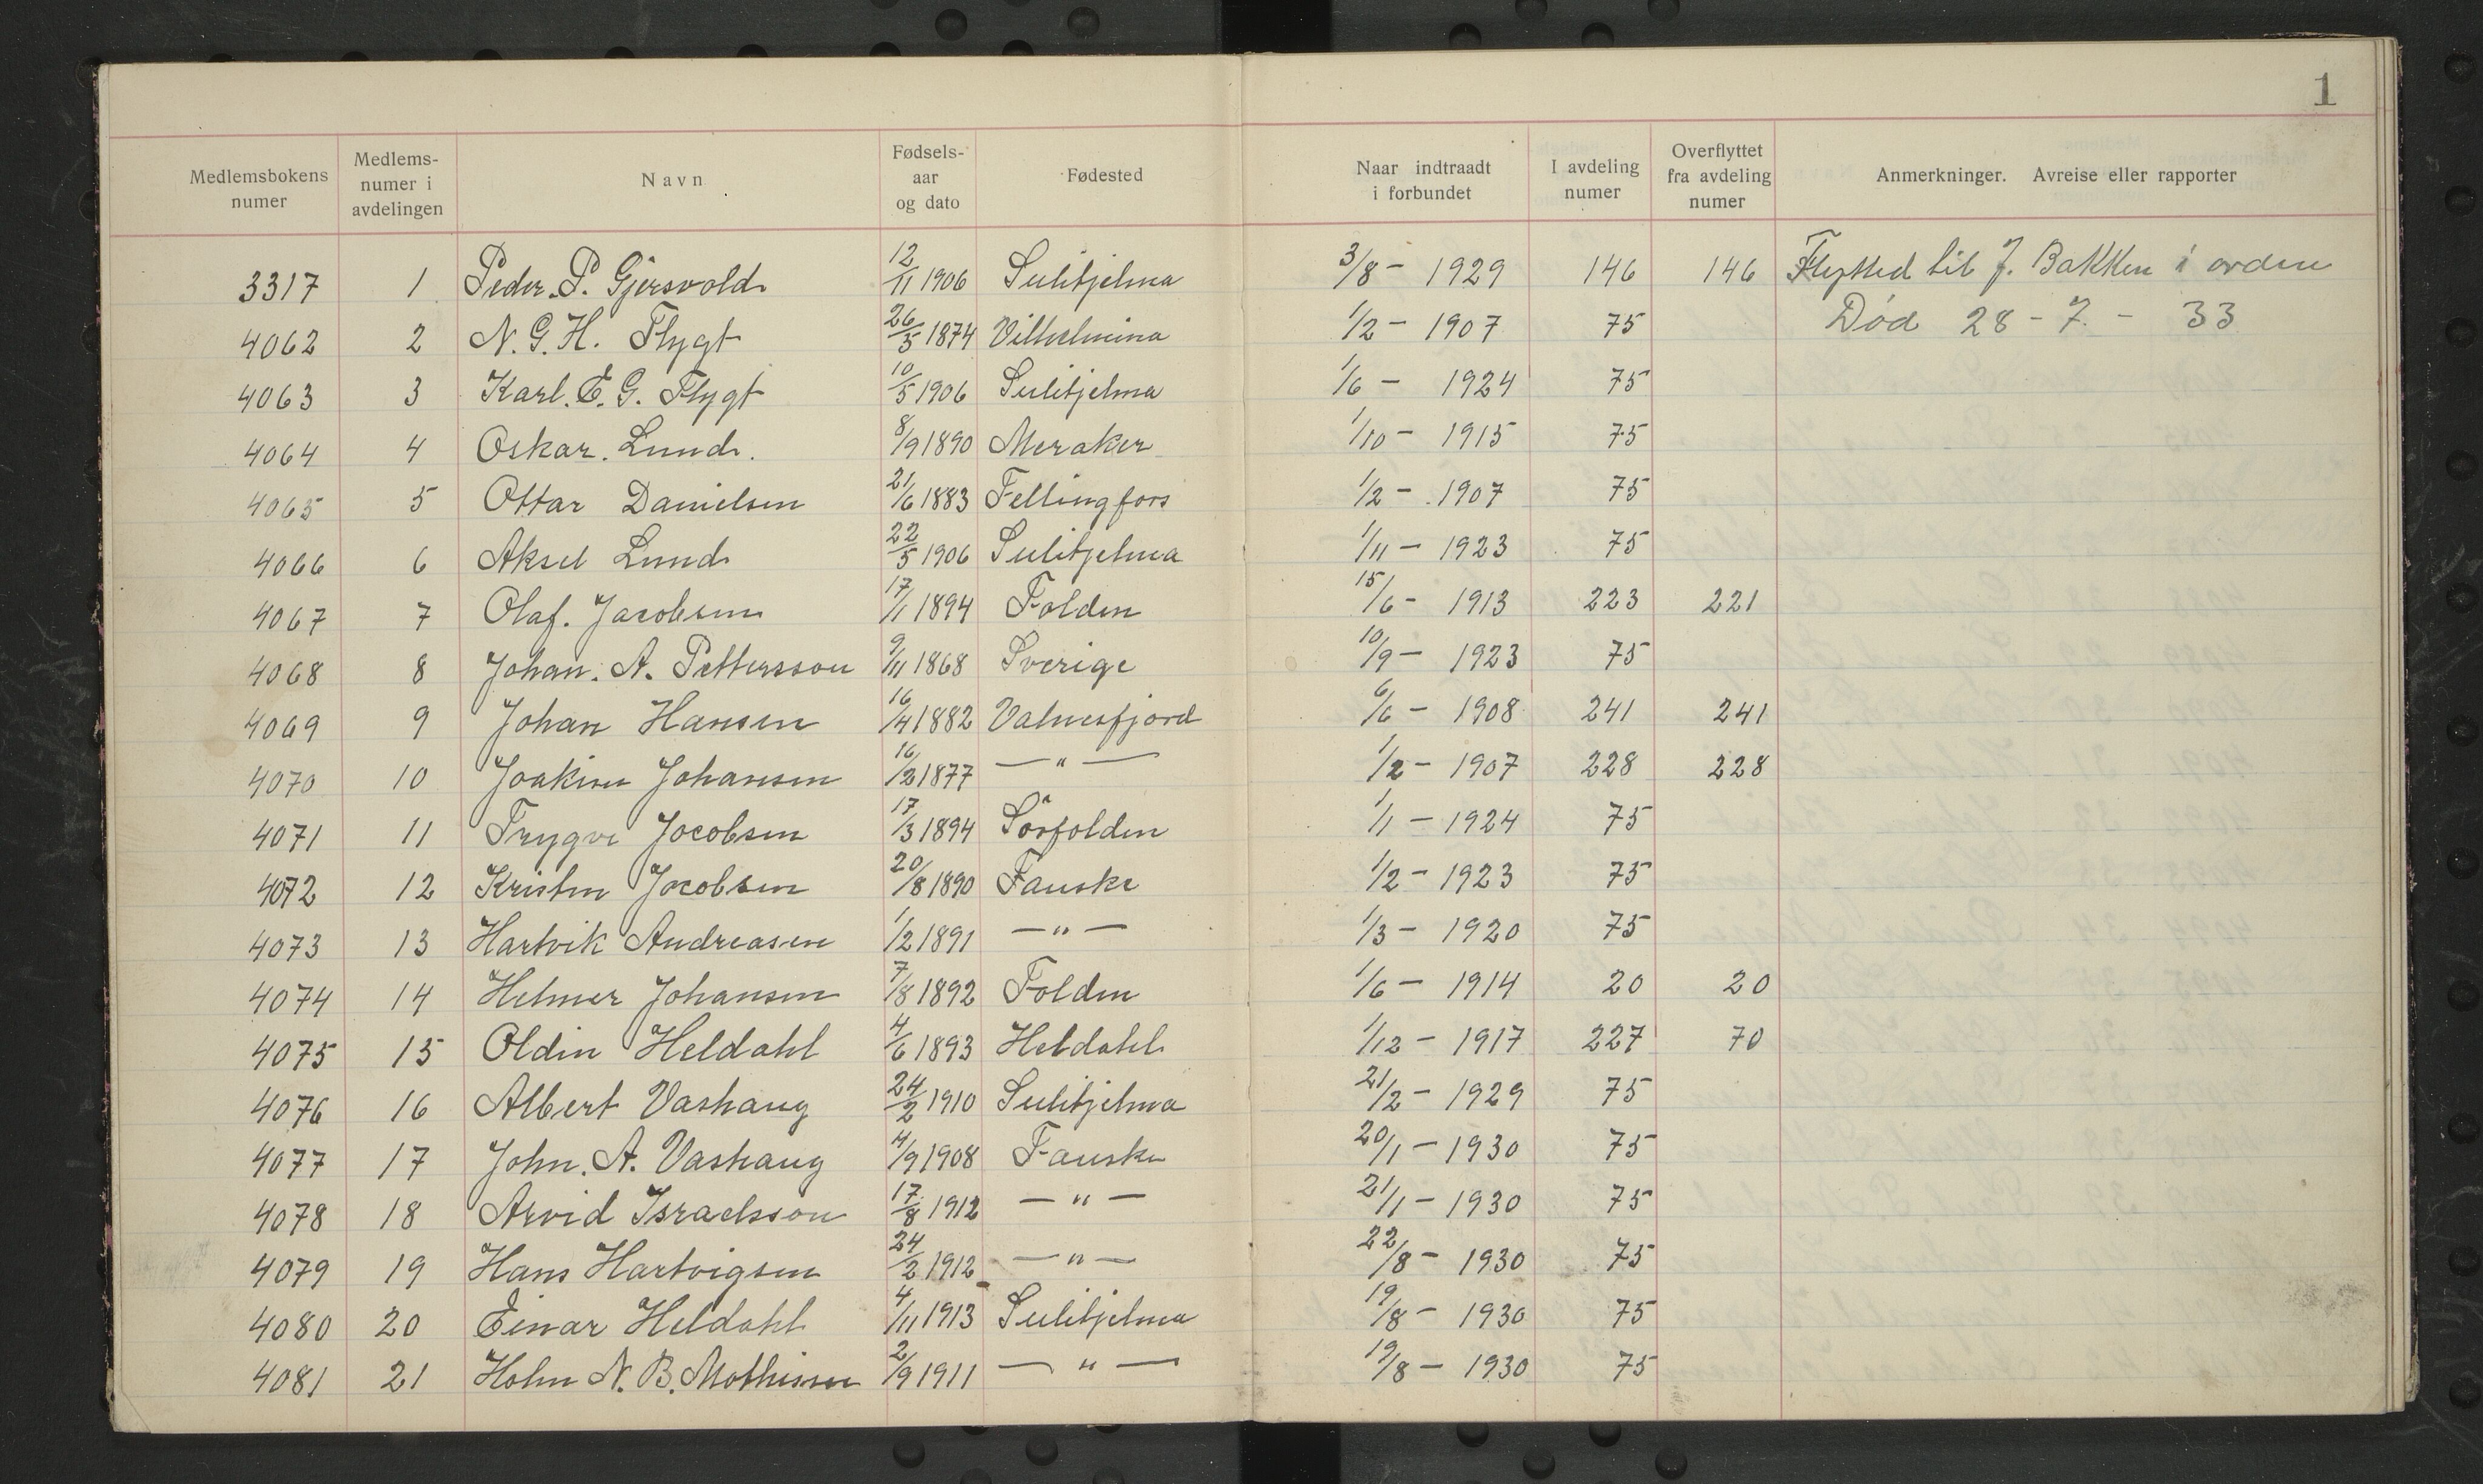 1
Medlemsbokens numer | Medlems-numer i avdelingen | Navn | Fødsels-aar og dato | Fødested | Naar indtraadt i forbundet | I avdeling numer | Overflyttet fra avdeling numer | Anmerkninger. Avreise eller rapporter
3317 1 Peder. P. Gjersvold 12/11 1906 Sulitjelma 3/8 - 1929 146 146 Flytted til J. Bakken i orden
4062 2 N. G. H. Flygt 26/5 1874 Vilhelmina 1/2 - 1907 75 Død 28 - 7 - 33
4063 3 Karl. E. G. Flygt 10/5 1906 Sulitjelma 1/6 - 1924 75
4064 4 Oskar. Lund. 8/9 1890 Meraker 1/10 - 1915 75
4065 5 Ottar Danielsen 21/6 1883 Fellingfors 1/2 - 1907 75
4066 6 Aksel Lund 22/5 1906 Sulitjelma 1/11 - 1923 75
4067 7 Olaf. Jacobsen 17/1 1894 Folden 15/6 - 1913 223 221
4068 8 Johan. A. Pettersson 9/11 1868 Sverige 10/9 - 1923 75
4069 9 Johan Hansen 16/4 1882 Valnesfjord 6/6 - 1908 241 241
4070 10 Joakim Johansen 16/2 1877 — " — 1/2 - 1907 228 228
4071 11 Trygve Jocobsen 17/3 1894 Sörfolden 1/1 - 1924 75
4072 12 Kristen Jacobsen 20/8 1890 Fauske 1/2 - 1923 75
4073 13 Hartvik Andreasen 1/2 1891 — " — 1/3 - 1920 75
4074 14 Helmer Johansen 7/8 1892 Folden 1/6 - 1914 20 20
4075 15 Oldin Heldahl 4/6 1893 Heldahl 1/12 - 1917 227 70
4076 16 Albert Vashaug 24/2 1910 Sulitjelma 21/2 - 1929 75
4077 17 John. A. Vashaug 4/9 1908 Fauske 20/1 - 1930 75
4078 18 Arvid Israelsson 17/8 1912 — " — 21/1 - 1930 75
4079 19 Hans Hartvigsen 24/2 1912 — " — 22/8 - 1930 75
4080 20 Einar Heldahl 4/11 1913 Sulitjelma 19/8 - 1930 75
4081 21 Holm N. B. Mathisen 2/9 1911 — " — 19/8 - 1930 75